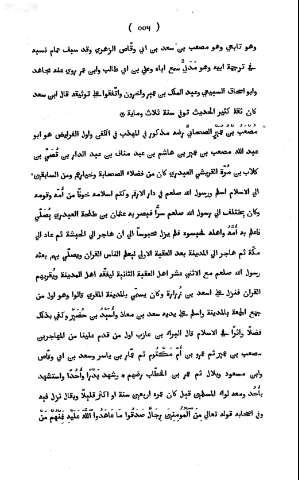 ( ٥٥٧ )
وهو تابعي وهو مصعب بن سعد بن ابي وقاص الزهري وقد سبق تمام نسبه
في ترجمة ابيه وهو مدنيّ سمع اباه وعلي بن ابي طالب وابن عمر روى عنه مجاهد
وابو اسحاق السبيعي وعبد الملك بن عمير واخرون واتفقوا على توثيقه قال ابن سعد
كان ثقة كثير الحديث توفي سنة ثلاث وماية
مُصْعَب بن عُمَيْر الصحابيّ رضه مذكور في المهذب في الكفن واول الفرايض هو ابو
عبد الله مصعب بن عمير بن هاشم بن عبد مناف بن عبد الدار بن قُصَيّ بن
كلاب بن مُرّة القريشي العبدري كان من فضلاء الصحابة وخيارهم ومن السابقين
الى الاسلام اسلم ورسول الله صلعم في دار الارقم وكتم اسلامه خوفًا من أمّه وقومه
وكان يختلف الى رسول الله صلعم سرًّا فبصر به عثمان بن طلحة العبدري يُصَلّي
فاعلم به أُمَّه واهله فحبسوه فلم يزل محبوسًا الى ان هاجر الى الحبشة ثم عاد الى
مكّة ثم هاجر الى المدينة بعد العقبة الاولى ليعلم الناس القران ويصلّي بهم بعثه
رسول الله صلعم مع الاثني عشر اهل العقبة الثانية ليفقّه اهل المدينة ويُقريهم
القران فنزل على اسعد بن زُرارة وكان يسمّى بالمدينة المقري قالوا وهو اول من
جمع الجمعة بالمدينة واسلم على يديه سعد بن معاذ وأُسَيْد بن حُضَيْر وكفى بذلك
فضلًا واثرًا في الاسلام قال البراء بن عازب اول من قدم علينا من المهاجرين
مصعب بن عمير ثم عمرو بن أُمّ مَكْتُوم ثم عمّار بن ياسر وسعد بن ابي وقاص
وابن مسعود وبلال ثم عمر بن الخطاب رضهم وشهد بَدْرًا وأُحُدًا واستشهد
بأُحُد ومعه لواء المسلمين قيل كان عمره اربعين سنة او اكثر قليلًا ويقال نزل فيه
وفي اصحابه قوله تعالى مِنَ ٱلْمُؤْمِنِينَ رِجَالٌ صَدَقُوا مَا عَاهَدُوا ٱللّٰهَ عَلَيْهِ فَمِنْهُمْ مَنْ